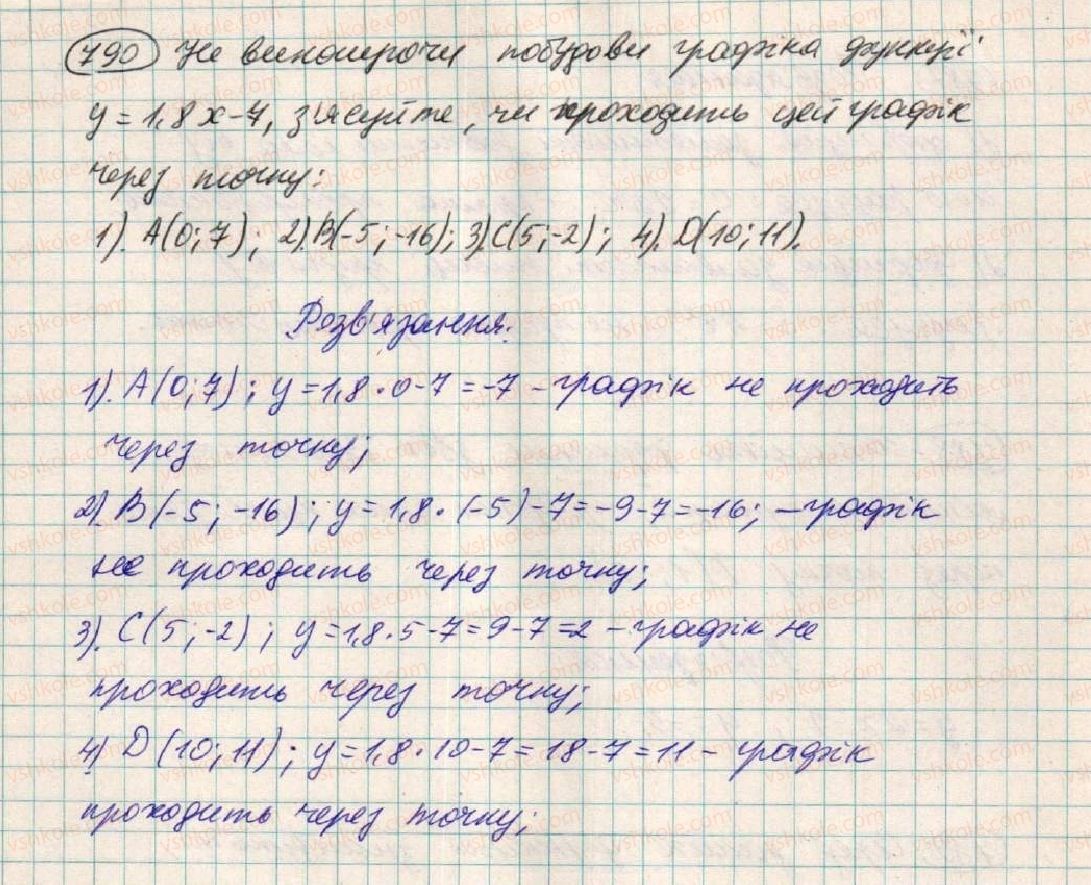 790 Не виконуючи побудови графіка функції
y = 1,8x-7, з'ясуйте, чи проходить цей графік
через точку:
1). A(0;7); 2).B(-5;-16); 3).C(5;-2); 4). D(10;11).
Розв'язання:
1). A(0;7); y = 1,8·0-7 = -7 - графік не проходить
через точку;
2). B(-5; -16); y = 1,8·(-5)-7 = -9-7 = -16; - графік
не проходить через точку;
3). C(5;-2); y = 1,8·5-7 = 9-7 = 2 - графік не
проходить через точку;
4) D(10;11); y = 1,8·10-7 = 18-7 = 11 - графік
проходить через точку;